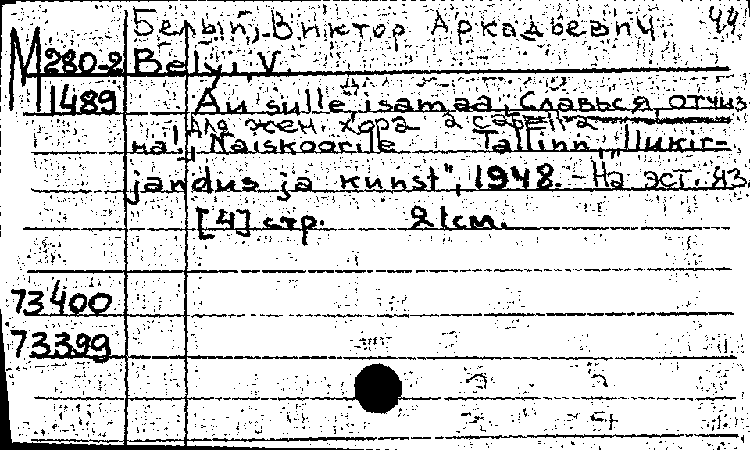 Белый, Виктор Аркадьевич 44
М 280-2 Belyi, V.
1489 Au sulle, isamaa, Славься, отчиз
для жен. хора a cappella
на!, Naiskoorile Tallinn, "Ilukir-
jandus ja kunst", 1948. - На эст. яз.
[4] стр. 21см.
73400
73399